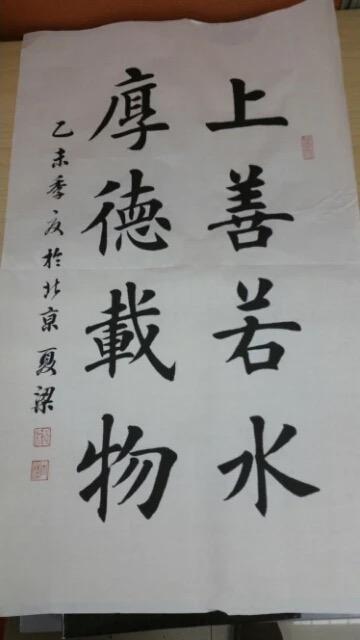 上善若水
厚德載物
乙未季夏於北京夏梁